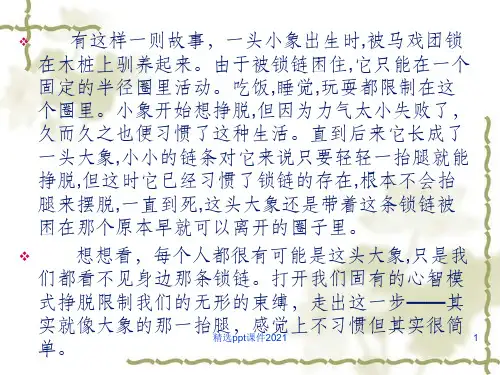 有这样一则故事，一头小象出生时,被马戏团锁
在木桩上驯养起来。由于被锁链困住,它只能在一个
固定的半径圈里活动。吃饭,睡觉,玩耍都限制在这
个圈里。小象开始想挣脱,但因为力气太小失败了,
久而久之也便习惯了这种生活。直到后来它长成了
一头大象,小小的链条对它来说只要轻轻一抬腿就能
挣脱,但这时它已经习惯了锁链的存在,根本不会抬
腿来摆脱,一直到死,这头大象还是带着这条锁链被
困在那个原本早就可以离开的圈子里。
想想看，每个人都很有可能是这头大象,只是我
们都看不见身边那条锁链。打开我们固有的心智模
式挣脱限制我们的无形的束缚，走出这一步——其
实就像大象的那一抬腿，感觉上不习惯但其实很简
单。
精选ppt课件2021
1